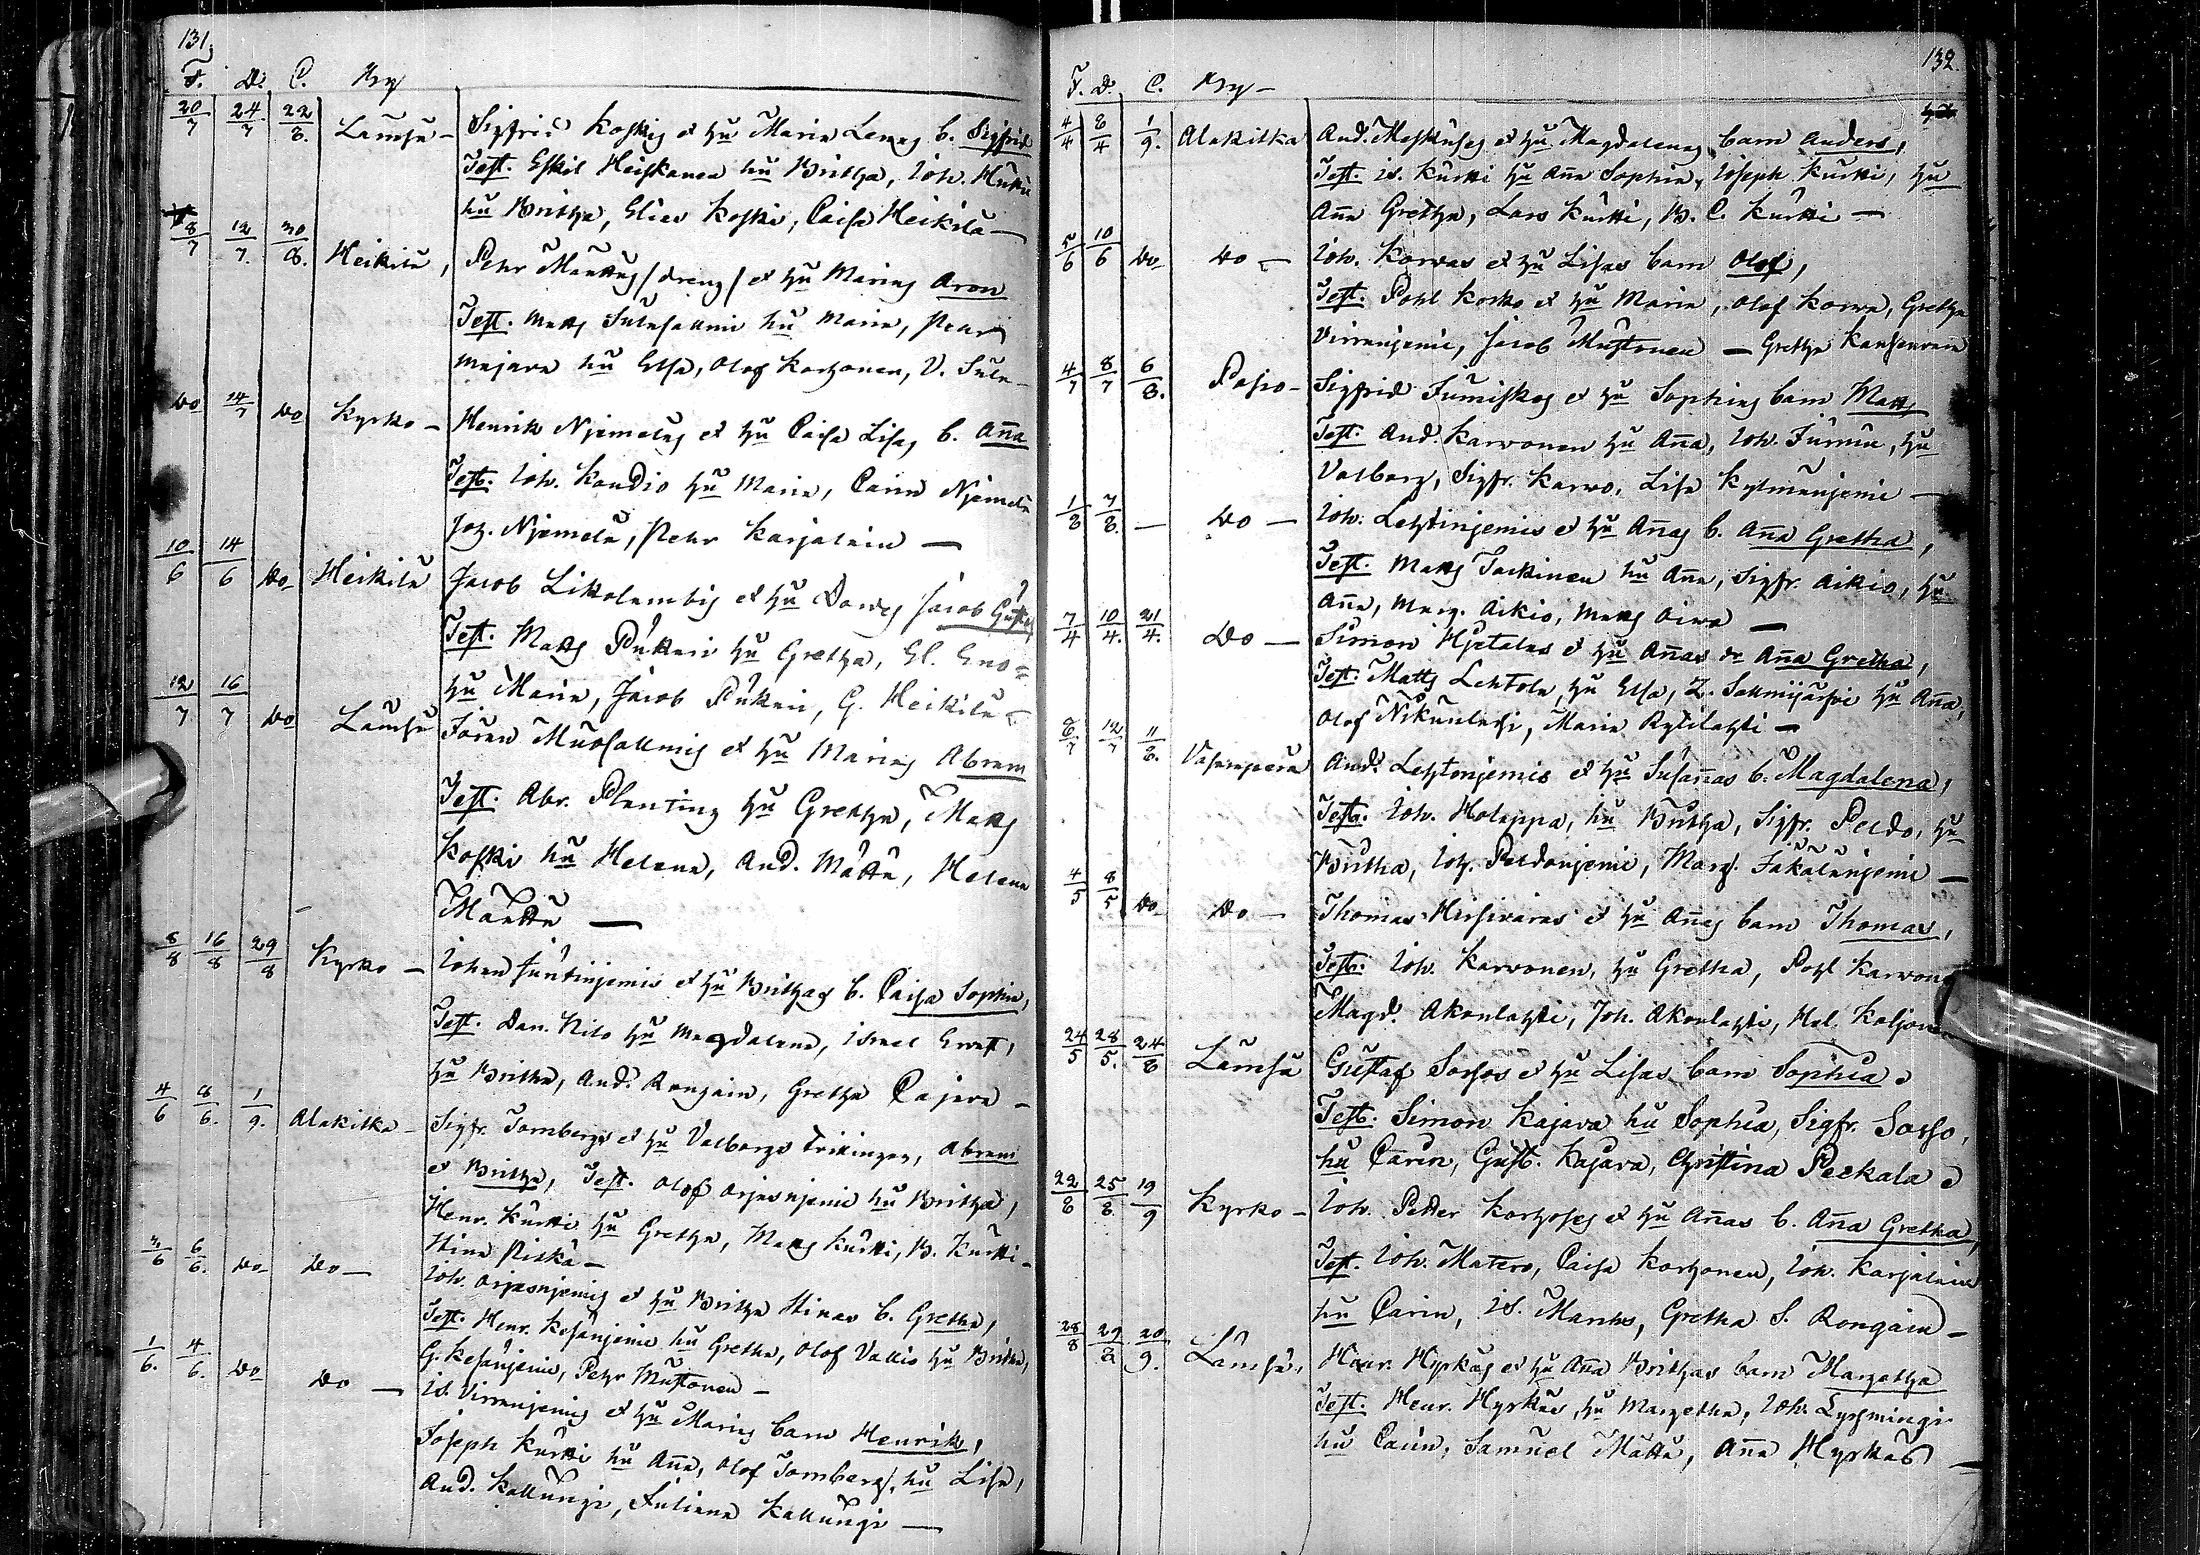 131.
F. D. C. By
20/7 24/7 22/8. Lamsa - Sigfrid Koskis et hu Maria Lenas b. Sigfrid
Test. Eskil Heiskanen hu Britha, Joh.
hu Britha, Elias Koski, Caisa Heikilä —
8/7 12/7. 30/8. Heikilä, Petr Mättäs /dreng/ et hu Marias Aron
Test. Matts Sulasalmi hu Maria, Petr
Majava hu Elsa, Olof Korhonen, V. Sula-
Do 14/7 Do Kyrko - Henrik Njemeläs et hu Caisa Lisas b. Aña
Test. Joh. Kandio hu Maria, Carin Njemelä
Joh. Njemelä, Petr Karjalain —
10/6 14/6 Do Heikilä Jacob Likolambis et hu Jacob
Test. Matts Pukari hu Gretha, El. Eno-
hu Maria, Jacob Pukari, G. Heikilä
12/7 16/7 Do Lamsa Jöran Muosalmis et hu Marias Abram
Test. Abr. Planting hu Gretha, Matts
Koski hu Helena, And. Mättä, Helena
Mättä —
8/8 16/8 29/8 Kyrko - Johan Juntinjemis et hu Brithas b. Caisa Sophia,
Test. Dan. Kilo hu Magdalena, Israel Ervast,
hu Britha, And. Rongain, Gretha Cajava -
4/6 8/6. 1/9. Alakitka - Sigfr. Tornbergs et hu Valborgs Tvillingar, Abram
et Britha, Test. Olof Orjasnjemi hu Britha,
Henr. Kurtti hu Gretha, Matts Kurtti, B. Kurtti -
Stina Piskä -
3/6 6/6. Do Do - Joh. Orjasnjemis et hu Britha Stinas b. Gretha,
Test. Henr. Kesänjemi hu Gretha, Olof Vallio hu Britha,
G. Kesänjemi, Petr Mustonen -
1/6. 4/6. Do Do - Is. Virranjemis et hu Marias barn Henrik,
Joseph Kurtti hu Aña, Olof Tornberg, hu Lisa,
And. Kallungi, Juliana Kallungi —
132.
F. D. C. By -
4/4 8/4 1/9. Alakitka And. Moskuses et hu Magdalenas barn Anders,
Test. Is. Kurtti hu Aña Sophia, Joseph Kurtti, hu
Aña Gretha, Lars Kurtti, B. C. Kurtti —
5/6 10/6 Do Do - Joh. Korvas et hu Lisas barn Olof,
Test. Pohl Korva et hu Maria, Olof Korva, Gretha
Virranjemi, Jacob Mustonen — Gretha
4/7 8/7 6/8. Posio - Sigfrid Jumiskos et hu Sophias barn Matts
Test. And. Karvonen hu Aña, Joh. Jurmu, hu
Valborg, Sigfr. Karvo, Lisa Kylmänjemi —
1/8 7/8. — Do — Joh. Lehtinjemis et hu Añas b. Aña Gretha,
Test. Matts Tarkinen hu Aña, Sigfr. Aikio, hu
Aña, Marg. Aikio, Matts Oiva —
7/4 10/4. 21/4. Do — Simon Hjetalas et hu Añas dr Aña Gretha,
Test. Matts Lehtola, hu Elsa, Z. Salmijärvi hu Aña,
Olof Nikunlasi, Maria Kytilahti —
8/7 12/7 11/8. Vasaraperä And. Lehtonjemis et hu Susañas b. Magdalena,
Test. Joh. Holappa, hu Britha, Sigfr. Peldo, hu
Britha, Joh. Peldonjemi, Marg. Jäkälänjemi —
4/5 8/5 Do Do — Thomas Hirsiväras et hu Añas barn Thomas,
Test. Joh. Karvonen, hu Gretha, Pohl Karvonen
Magd. Akonlahti, Joh. Akonlahti, Hel. Koljonen
24/5 28/5. 24/8 Lamsa Gustaf Sarsos et hu Lisas barn Sophia
Test. Simon Kajava hu Sophia, Sigfr. Sarso,
hu Carin, Gust. Kajava, Christina Peekala
22/8 25/8. 19/9 Kyrko - Joh. Petter Korhoses et hu Añas b. Aña Gretha,
Test. Joh. Matero, Caisa Korhonen, Joh. Karjalain
hu Carin, Is. Mantes, Gretha S. Rongain —
28/8 29/8 20/9. Lamsa, Henr. Hyrkäs et hu Aña Brithas barn Margetha
Test. Henr. Hyrkäs, hu Margetha, Joh. Lyhmingi
hu Carin, Samuel Mättä, Aña Hyrkäs —